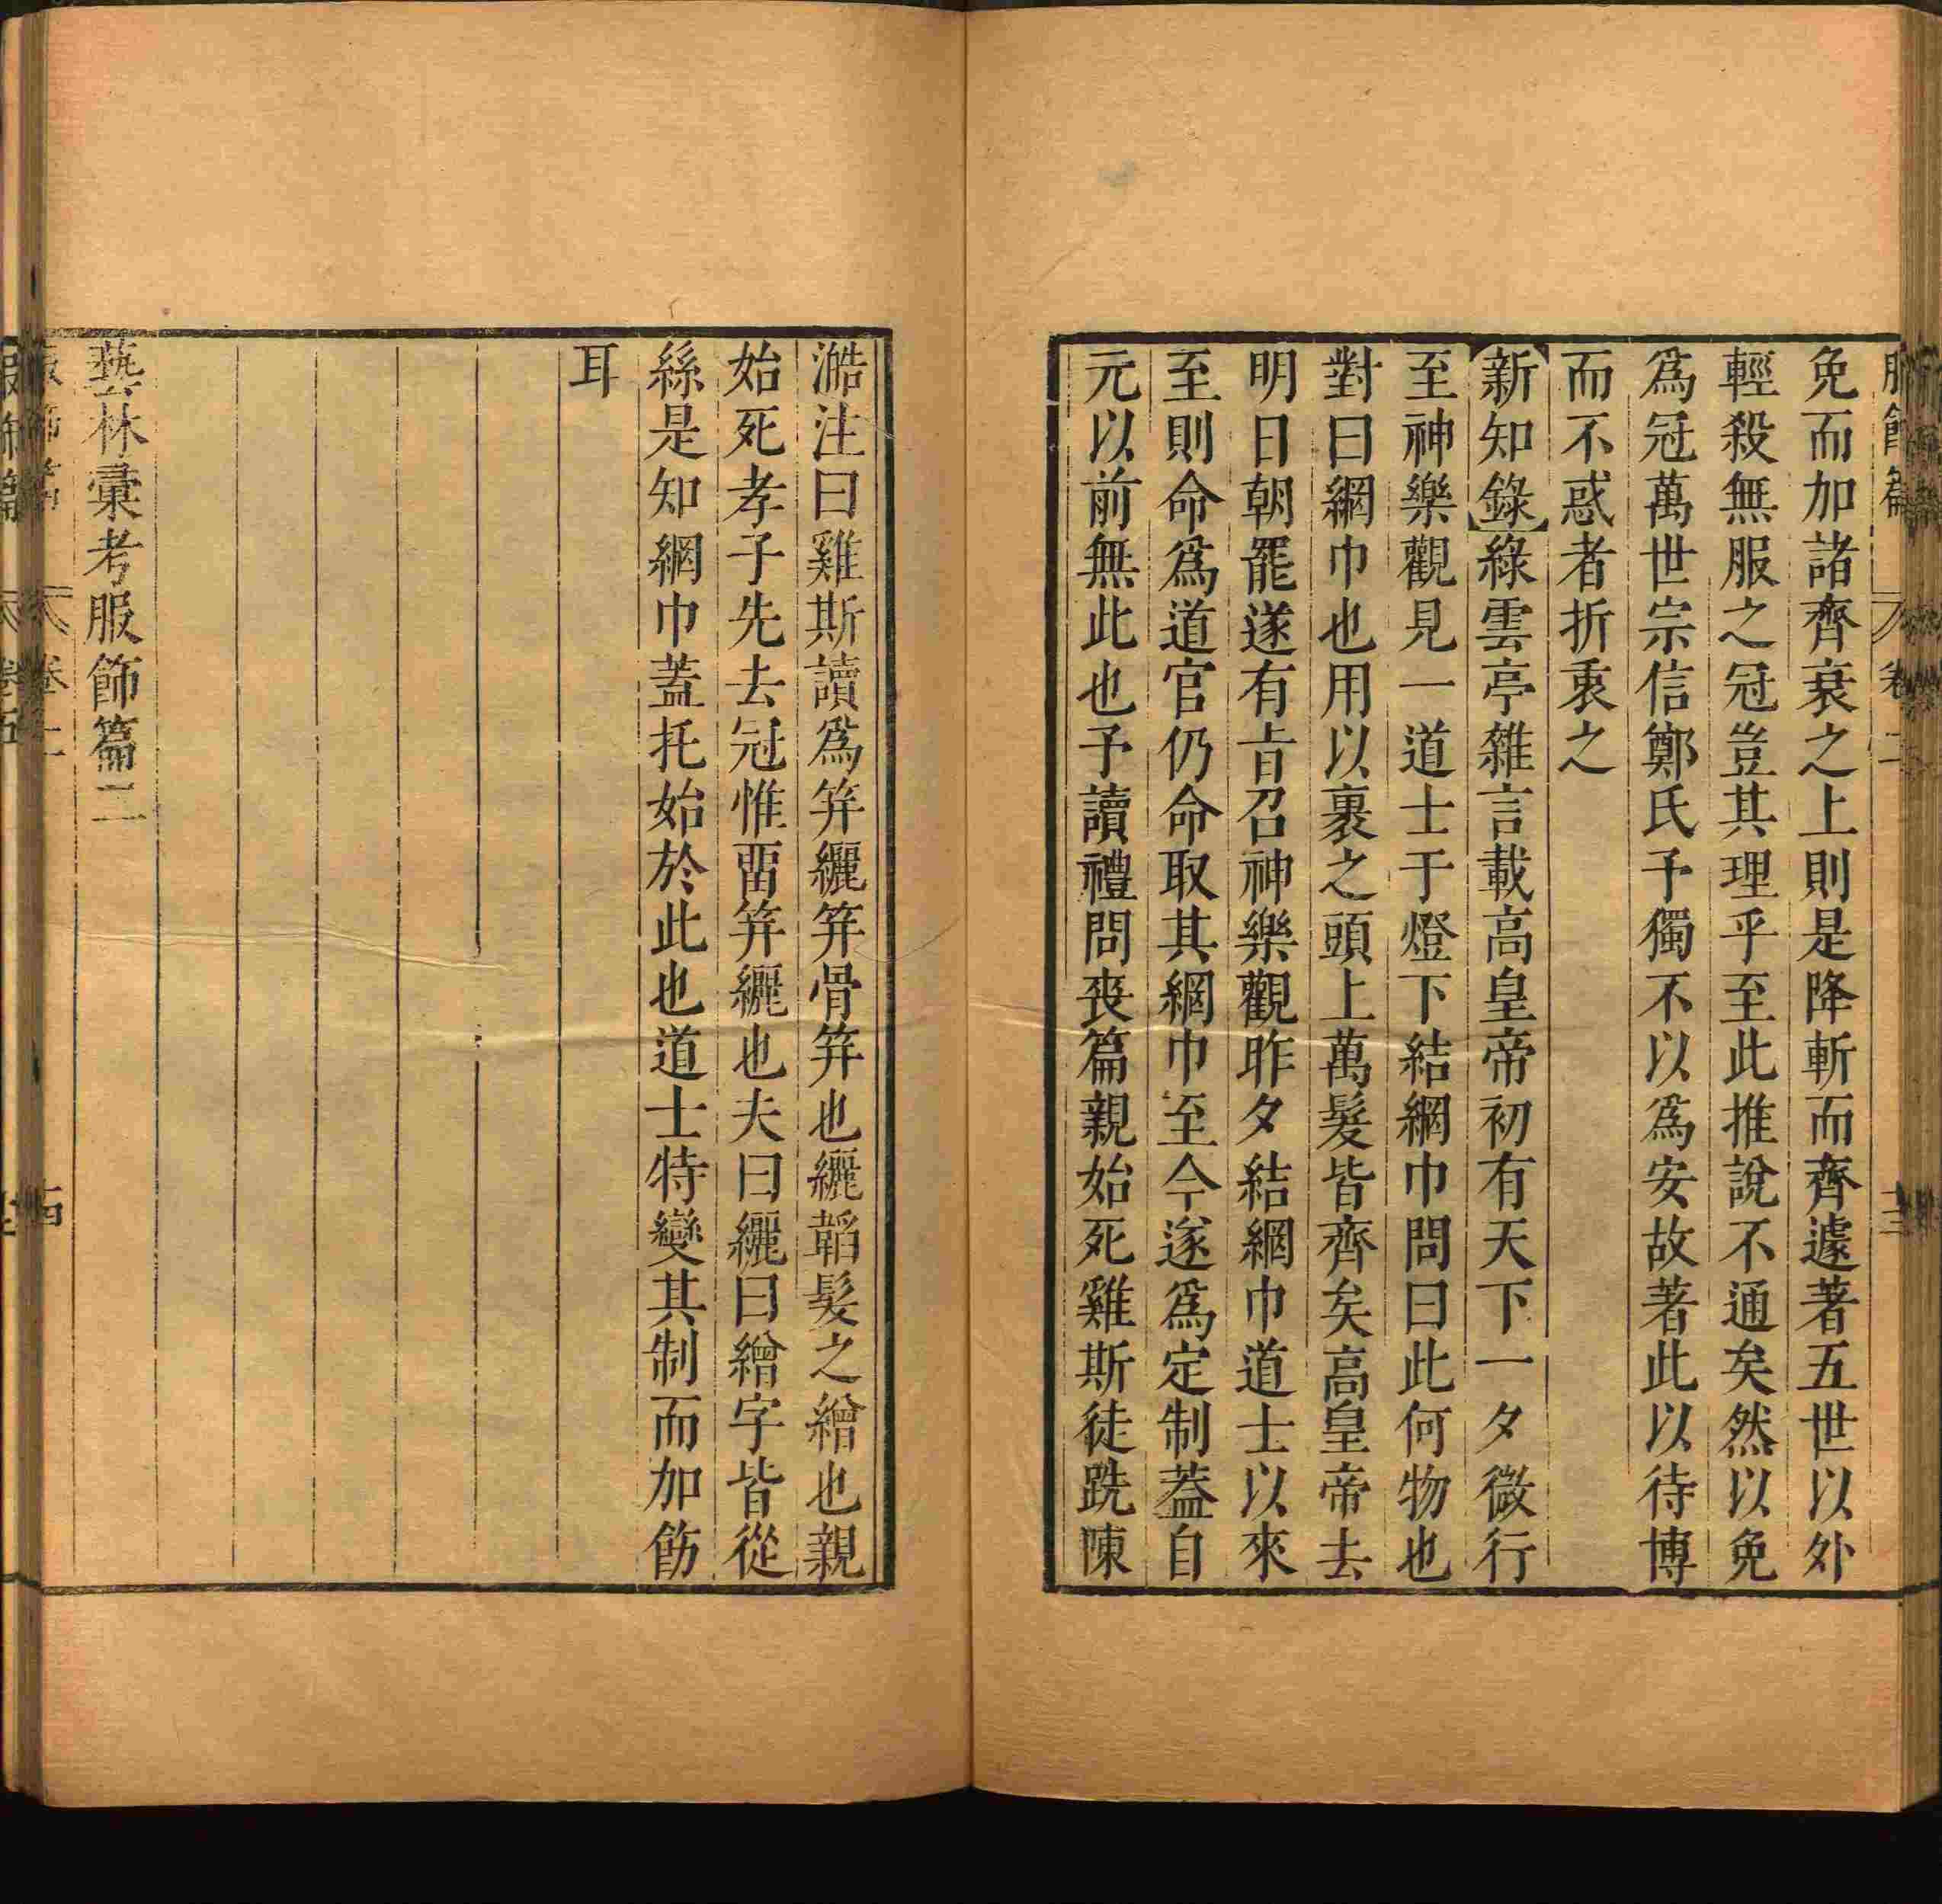 免而加諸齊衰之上則是降斬而齊遽著五世以外
輕殺無服之冠豈其理乎至此推說不通矣然以免
爲冠萬世宗信鄭氏予獨不以爲安故著此以待博
而不惑者折衷之
【新知錄】綠雲亭雜言載高皇帝初有天下一夕微行
至神樂觀見一道士于燈下結網巾問曰此何物也
對曰網巾也用以裹之頭上萬髮皆齊矣高皇帝去
明日朝罷遂有旨召神樂觀昨夕結網巾道士以來
至則命爲道官仍命取其網巾至今遂爲定制葢自
元以前無此也予讀禮問喪篇親始死雞斯徒跣陳
澔注曰雞斯讀爲筓纚筓骨筓也纚韜髮之繒也親
始死孝子先去冠惟畱筓纚也夫曰纚曰繒字皆從
絲是知網巾蓋托始於此也道士特變其制而加飭
耳
藝林彙考服飾篇二